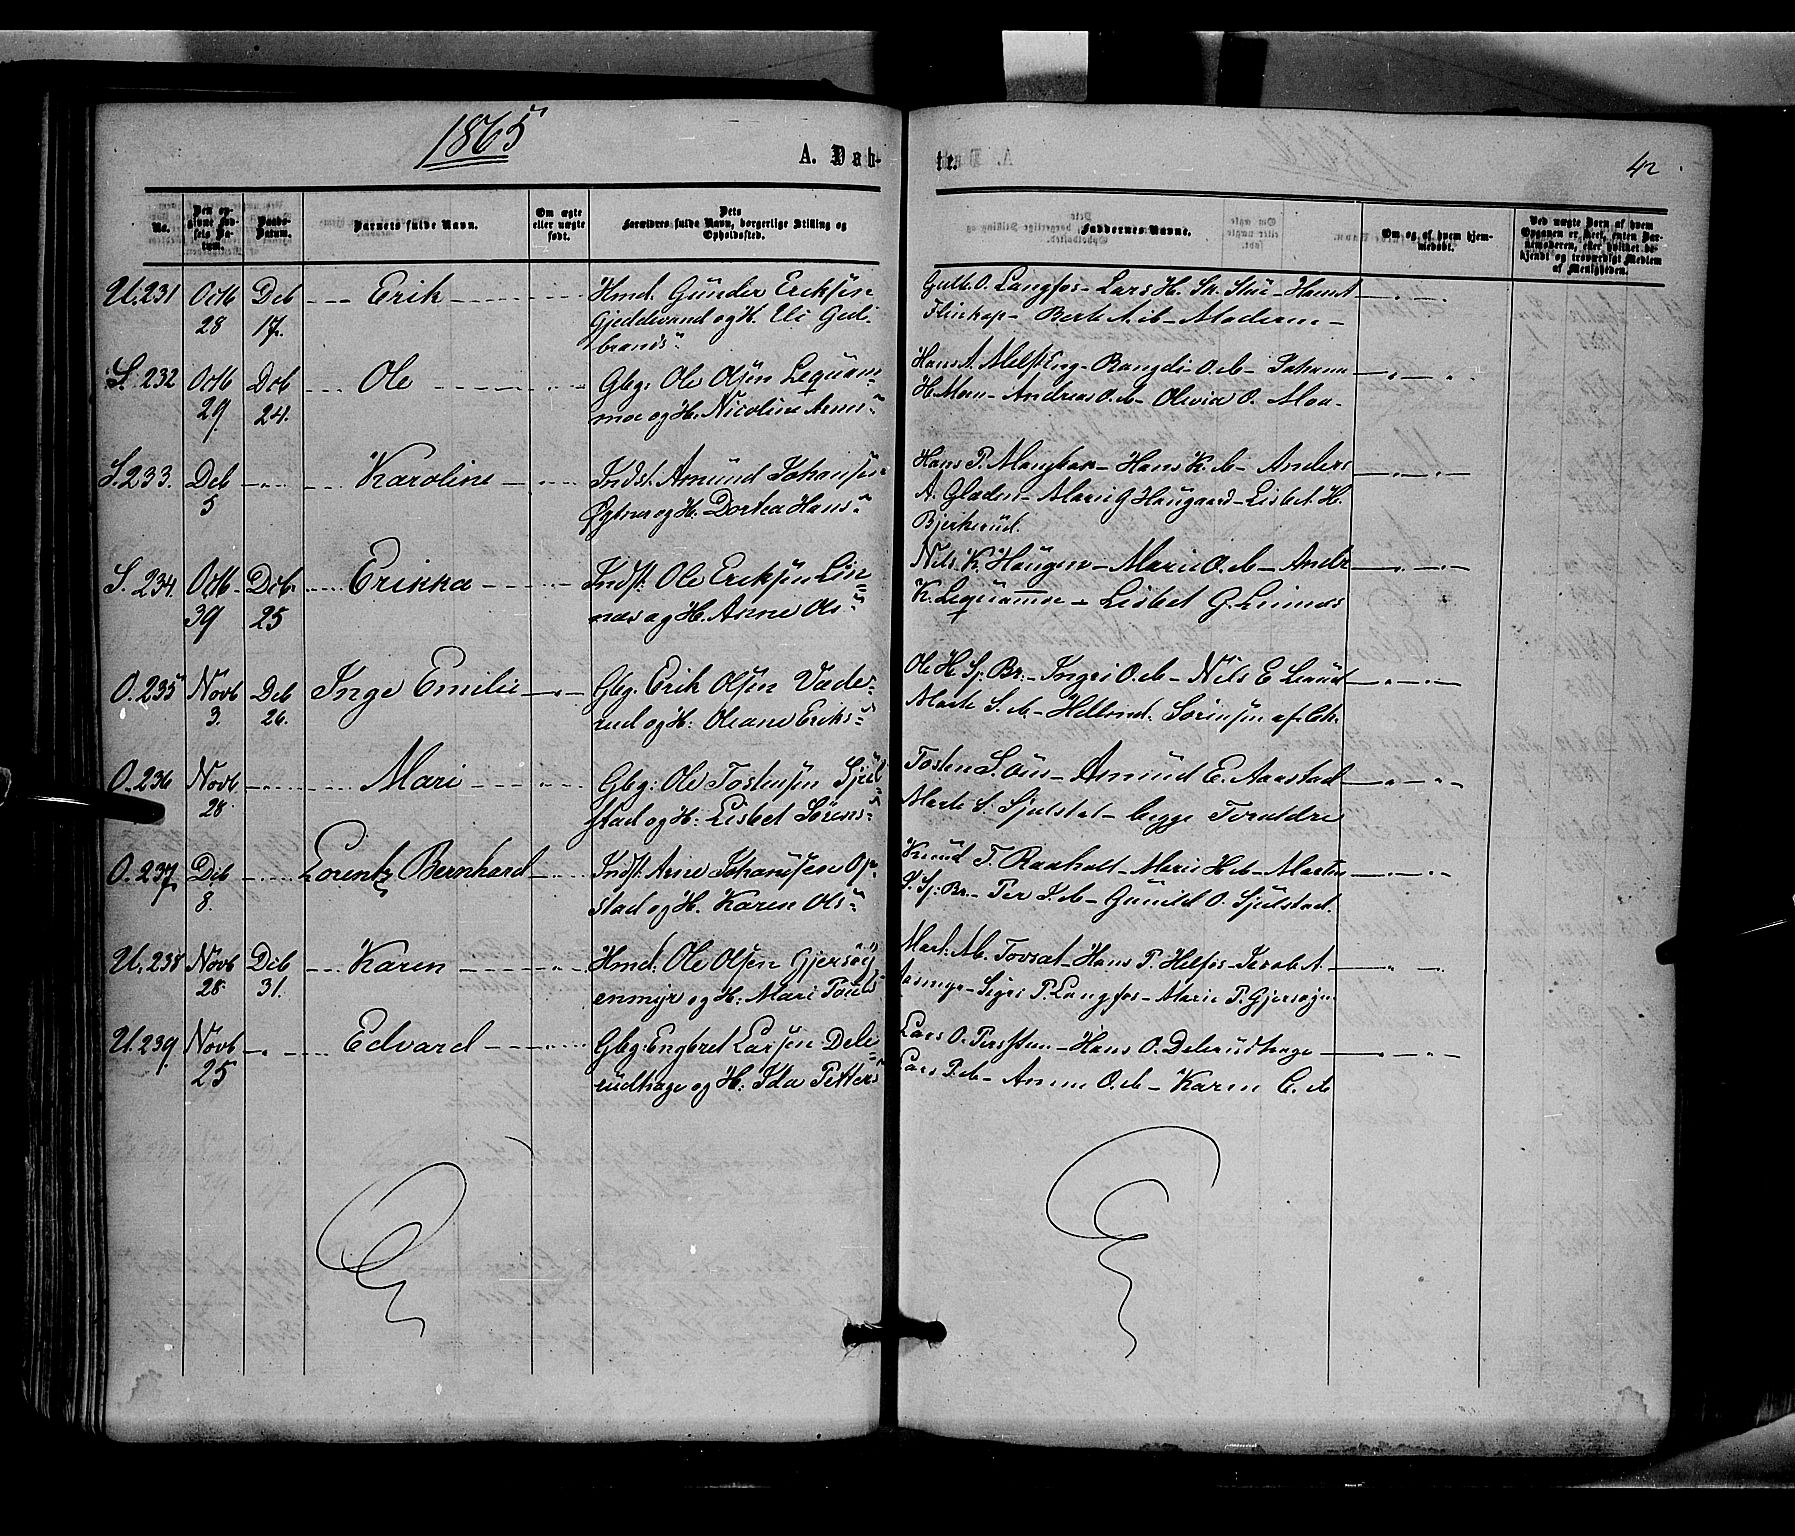 1865
A. Døb-
te.
42
No.
Den op-
givne Fød-
sels Da-
tum.
Daabs-
Datum.
Barnets fulde Navn.
Om ægte
eller uægte
født.
Dets
Forældres fulde Navn, borgerlige Stilling og
Opholdssted.
Faddernes Navne.
Om og af hvem hjem-
medøbt.
Ved uægte Børn af hvem
Opgaven er skeet, enten Bar-
nemoderen, eller hvilket be-
kjendt og troværdigt Medlem
af Menigheden.
U. 231 Octb Deb Erik Hmd. Gunder Eriksen
28 17. Gjeddevand og H. Eli Guld-
brands
Gulb. O. Langfos - Lars H. Sk. Stue - Hans A
Flinkop - Berte A. ib - Moderen -
S. 232 Octb Deb Ole Gbg: Ole Olsen Lequam-
29 24. moe og H. Nicoline Arnes
Hans A. Melseng - Rangdi O. ib - Johann
H. Moen - Andreas O. ib - Olivia O. Moa -
S. 233. Deb Karoline Indst. Amund Johansen
5 og H: Dortea Hans
Hans P. - Hans K. ib - Anders
A. Gladen - Marie G Haugaard - Lisbet H.
Bjerkerud.
S. 234. Octb Deb Erikka Indst: Ole Eriksen Lin-
39 25 næs og H. Anne Ols
Nils K. Haugen - Marie O. ib - Andr
K. Lequamoe - Lisbet G. Linnæs
O. 235 Novb Deb Inge Emilie Gbg: Erik Olsen Vade-
3. 26. rud og H: Oleane Eriks
Ole H. Sj: Br. - Ingri O. ib - Nils E Lerud
Marte S. ib - Sørensen af Chr.
O. 236 Novb Mari Gbg: Ole Tostensen Sjul-
28. stad og H: Lisbet Sørens
Tosten S. - Amund E. Aarstad
Marte S. Sjulstad - begge Forældre
O. 237 Deb Lorentz Bernhard Indst. Arne Johansen Op-
8. stad og H. Karen Ols
Knud T. Raaholt - Marie H. ib - Martin
S. Sj: Br. - Per S. ib - Gunild O. Sjulstad.
U. 238 Novb Deb Karen Hmd: Ole Olsen Gjersøj-
28. 31. enmyr og H: Mari Pouls
Mart. M. - Hans P. Helfos - Jacob A.
- Sigri P. Langfos - Marie P. Gjersøjen
U. 239. Novb Edvard Gbg: Engebret Larsen Dele-
25 rudhage og H: Ida Petters
Lars O. - Hans O. Delerudhage
Lars P. ib - Anne O. ib - Karen E. ib